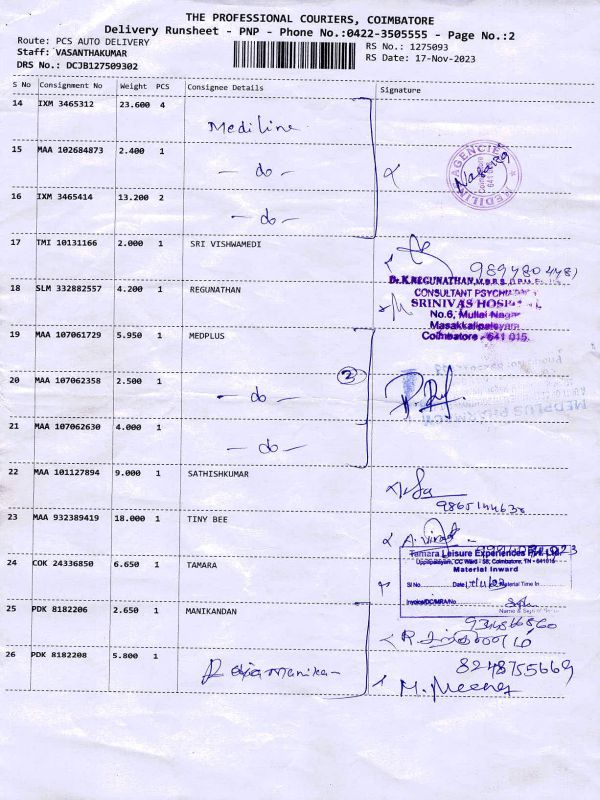 THE PROFESSIONAL COURIERS, COIMBATORE
Delivery Runsheet - PNP - Phone No.:0422-3505555 - Page No.:2
Route: PCS AUTO DELIVERY
RS No.: 1275093
Staff: VASANTHAKUMAR
RS Date: 17-Nov-2023
DRS No.: DCJB127509302
S No Consignment No Weight PCS Consignee Details Signature
14 IXM 3465312 23.600 4 Mediline
15 MAA 102684873 2.400 1 - do -
AGENCIES
Coimbatore
MEDILINE
16 IXM 3465414 13.200 2 - do -
17 TMI 10131166 2.000 1 SRI VISHWAMEDI
9894780478
18 SLM 332882557 4.200 1 REGUNATHAN
Dr.K.REGUNATHAN, M.B.B.S.
CONSULTANT PSYCHI
SRINIVAS HOSPITAL
No.6, Mullai Nagar
Masakkalipalayam
Coimbatore - 641 015.
19 MAA 107061729 5.950 1 MEDPLUS
20 MAA 107062358 2.500 1 - do -
2
MEDPLUS PHARMACY
21 MAA 107062630 4.000 1 - do -
22 MAA 101127894 9.000 1 SATHISHKUMAR
23 MAA 932389419 18.000 1 TINY BEE
24 COK 24336850 6.650 1 TAMARA
Tamara Leisure Experiences Pvt. Ltd.
Uppilipalayam, CC Ward - 58, Coimbatore, TN - 641015
Material Inward
Sl No. Date Material Time In
Invoice/DC/MRA/No.
Name & Sign of
25 PDK 8182206 2.650 1 MANIKANDAN
26 PDK 8182208 5.800 1
8248755669
M. Meena